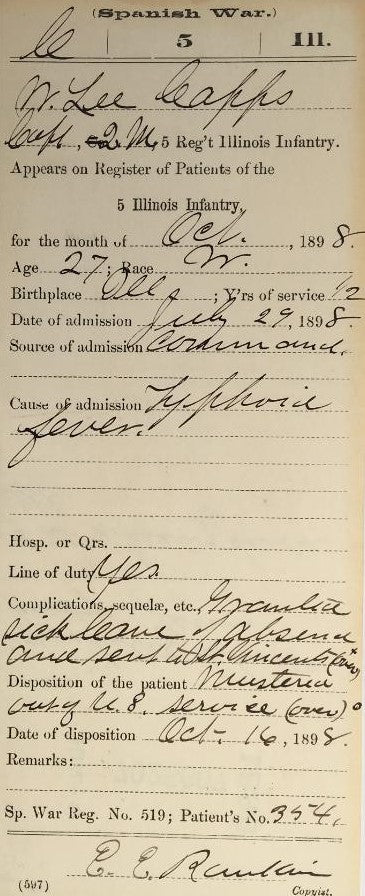 (Spanish War.)
C | 5 | Ill.
W. Lee Capps
Capt., 2 M, 5 Reg't Illinois Infantry.
Appears on Register of Patients of the
5 Illinois Infantry,
for the month of Oct. , 1898.
Age 27; Race W.
Birthplace Ills ; Y'rs of service 1/2
Date of admission July 29, 1898.
Source of admission Command.
Cause of admission Typhoid
fever.
Hosp. or Qrs.
Line of duty Yes.
Complications, sequelæ, etc. Granted
sick leave of absence
and sent to St. Vincents (over) x
Disposition of the patient Mustered
out of U.S. service (over) o
Date of disposition Oct. 16, 1898.
Remarks:
Sp. War Reg. No. 519; Patient's No. 354.
E. E. Rankin
(597) Copyist.